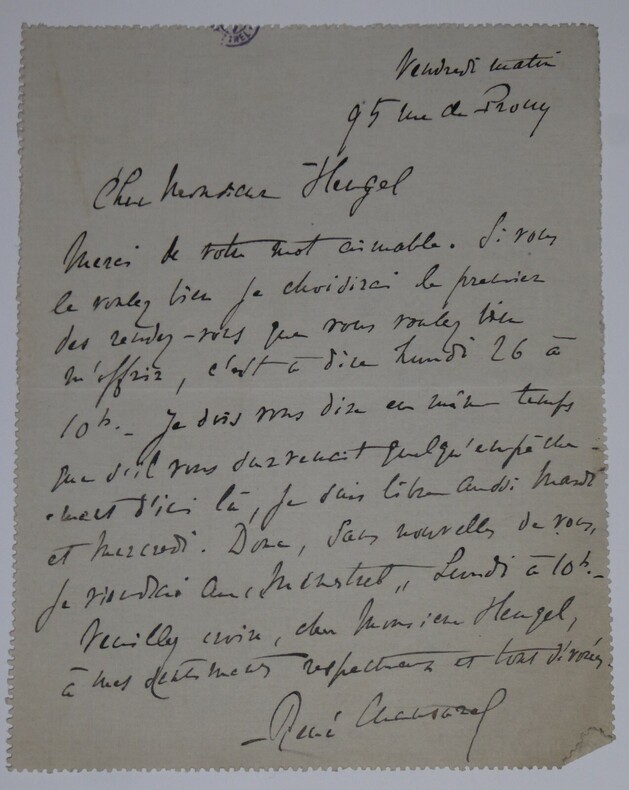 Vendredi matin
95 rue de Prony
Cher Monsieur Heugel
Merci de votre mot aimable. Si vous
le voulez bien je choisirai le premier
des rendez-vous que vous voulez bien
m'offrir, c'est à dire Lundi 26 à
10h. - Je dois vous dire en même temps
que s'il vous survenait quelqu'empêche-
-ment d'ici là, je suis libre aussi Mardi
et Mercredi. Donc, sans nouvelles de vous,
je viendrai au "Ménestrel" Lundi à 10h. -
Veuillez croire, cher Monsieur Heugel,
à mes sentiments respectueux et tout dévoués.
René Chansarel